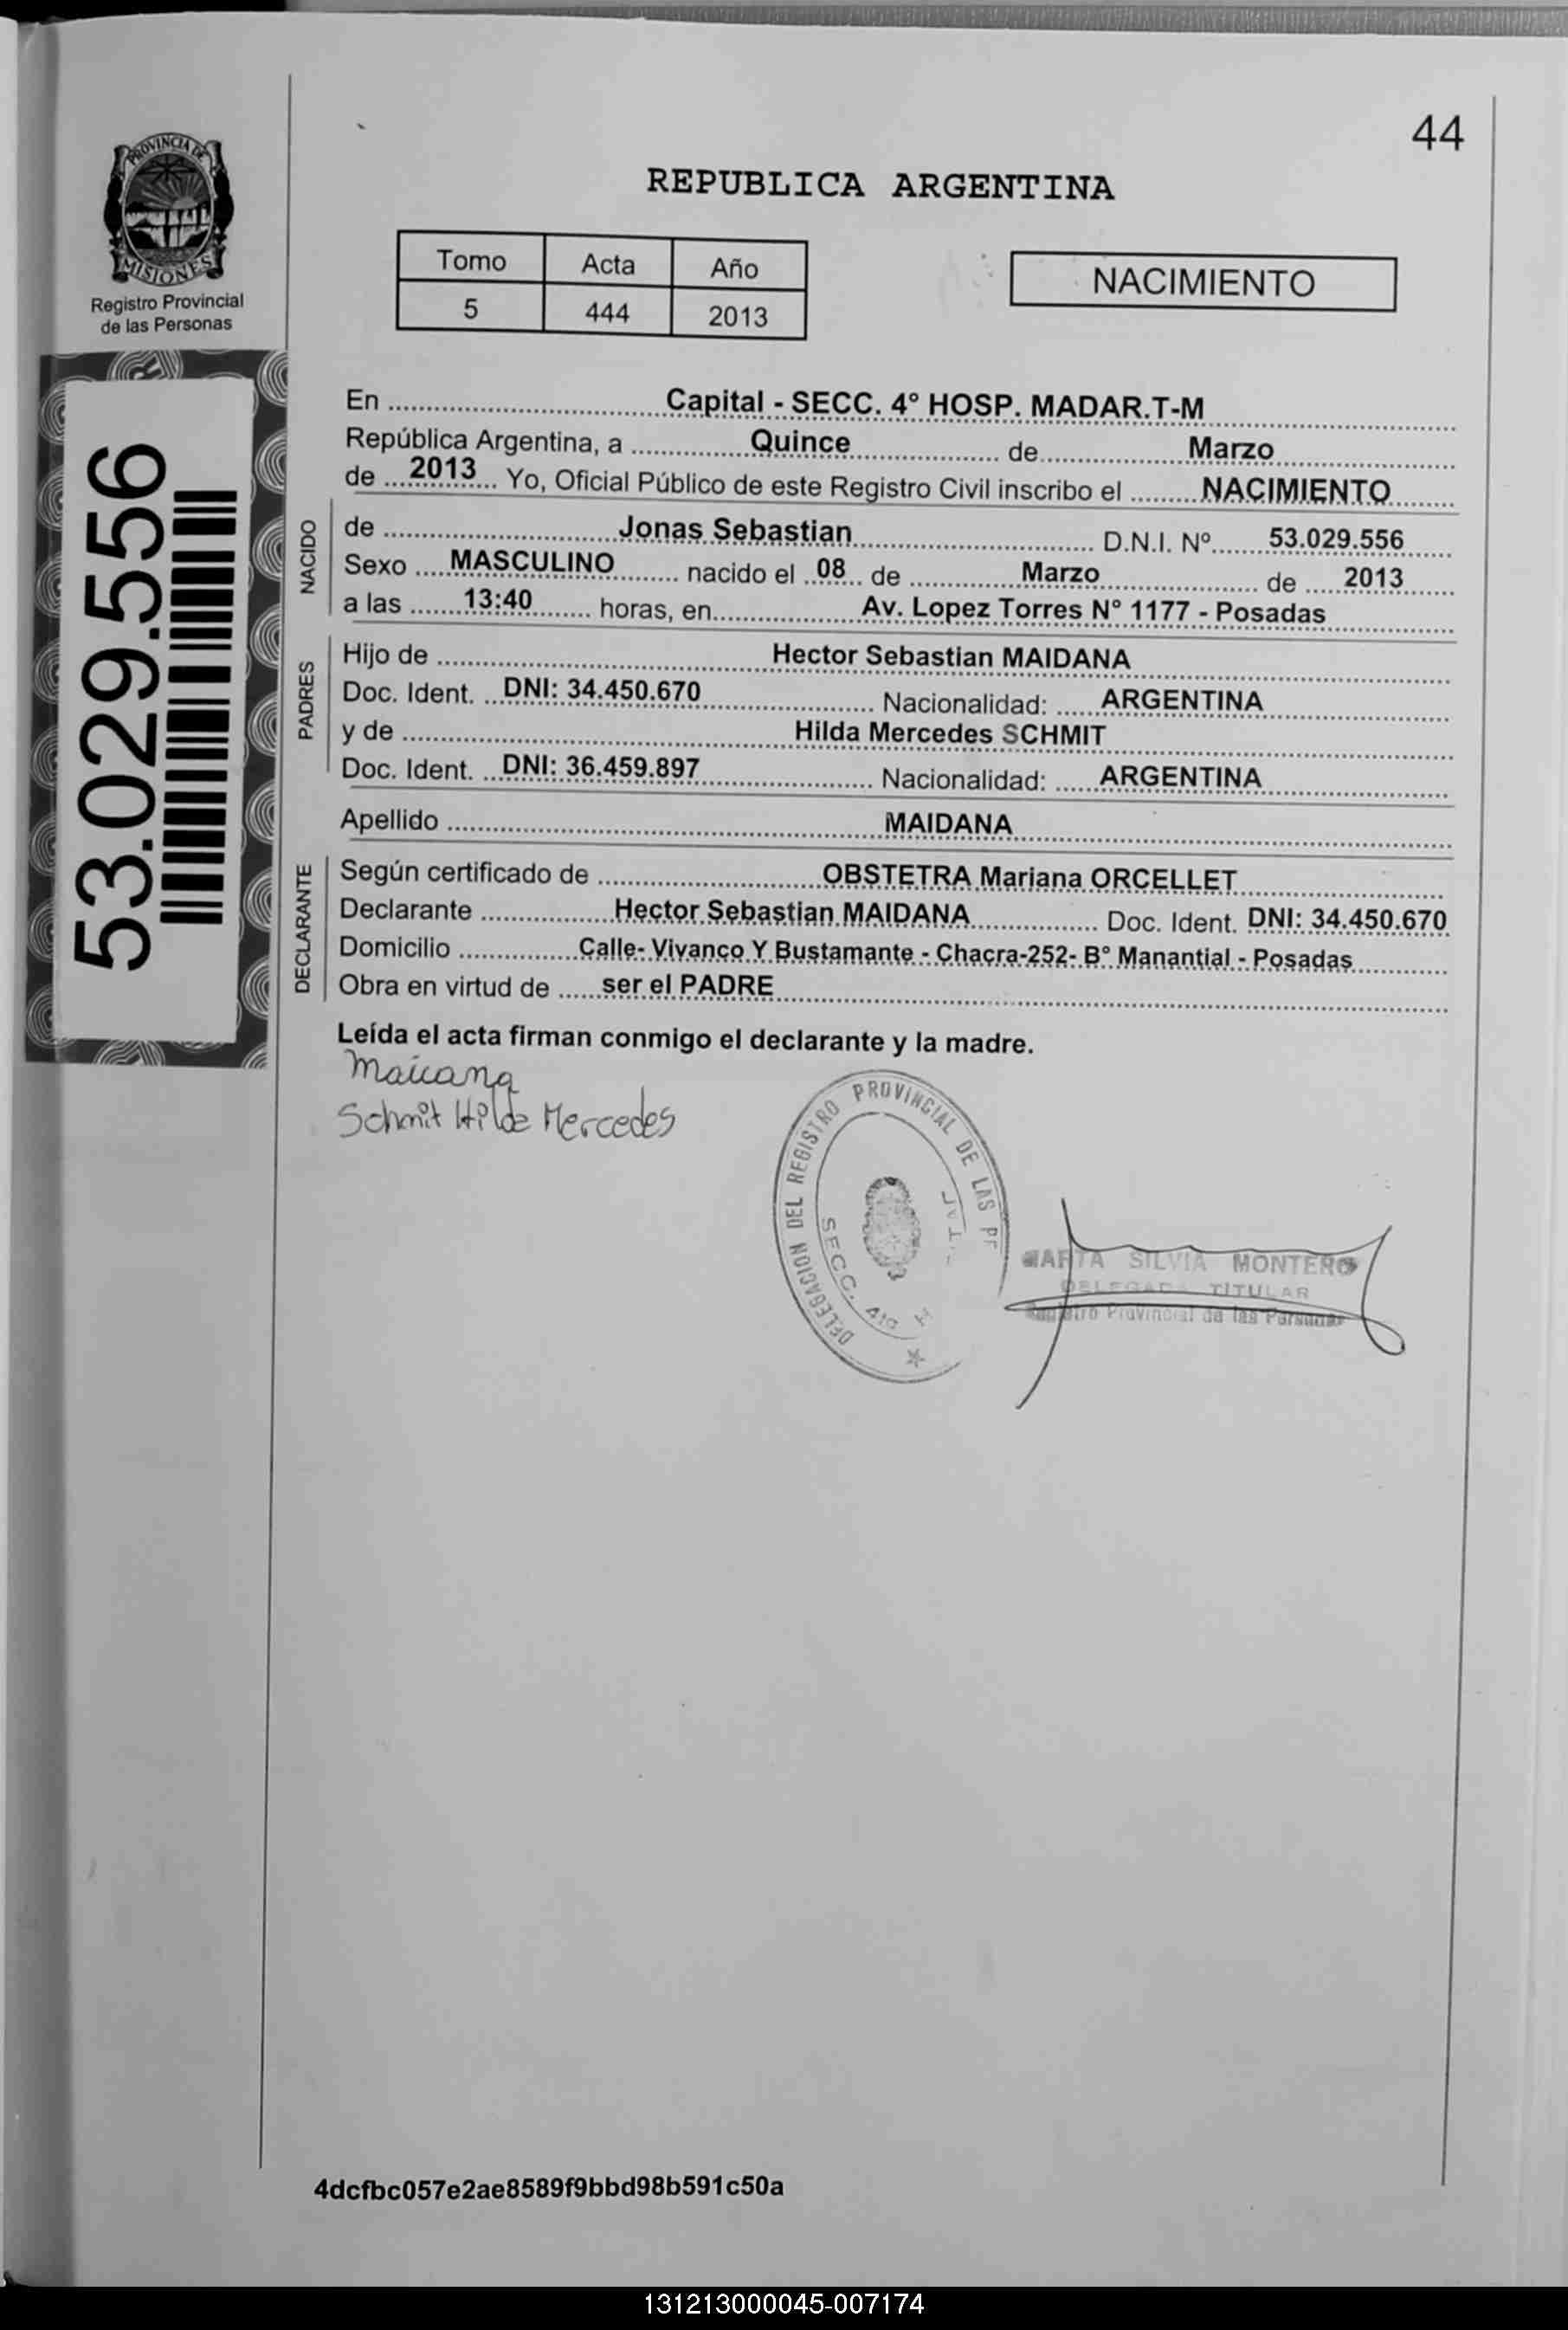 44
PROVINCIA DE
MISIONES
Registro Provincial
de las Personas
REPUBLICA ARGENTINA
Tomo Acta Año
5 444 2013
NACIMIENTO
53.029.556
En Capital - SECC. 4º HOSP. MADAR.T-M
República Argentina, a Quince de Marzo
de 2013 Yo, Oficial Público de este Registro Civil inscribo el NACIMIENTO
NACIDO
de Jonas Sebastian D.N.I. Nº 53.029.556
Sexo MASCULINO nacido el 08 de Marzo de 2013
a las 13:40 horas, en Av. Lopez Torres N° 1177 - Posadas
PADRES
Hijo de Hector Sebastian MAIDANA
Doc. Ident. DNI: 34.450.670 Nacionalidad: ARGENTINA
y de Hilda Mercedes SCHMIT
Doc. Ident. DNI: 36.459.897 Nacionalidad: ARGENTINA
Apellido MAIDANA
DECLARANTE
Según certificado de OBSTETRA Mariana ORCELLET
Declarante Hector Sebastian MAIDANA Doc. Ident. DNI: 34.450.670
Domicilio Calle- Vivanco Y Bustamante - Chacra-252- B° Manantial - Posadas
Obra en virtud de ser el PADRE
Leída el acta firman conmigo el declarante y la madre.
Schmit Hilda Mercedes
DELEGACION DEL REGISTRO PROVINCIAL DE LAS
SECC.
MARTA SILVIA MONTERO
DELEGADA TITULAR
Registro Provincial de las Personas
4dcfbc057e2ae8589f9bbd98b591c50a
131213000045-007174